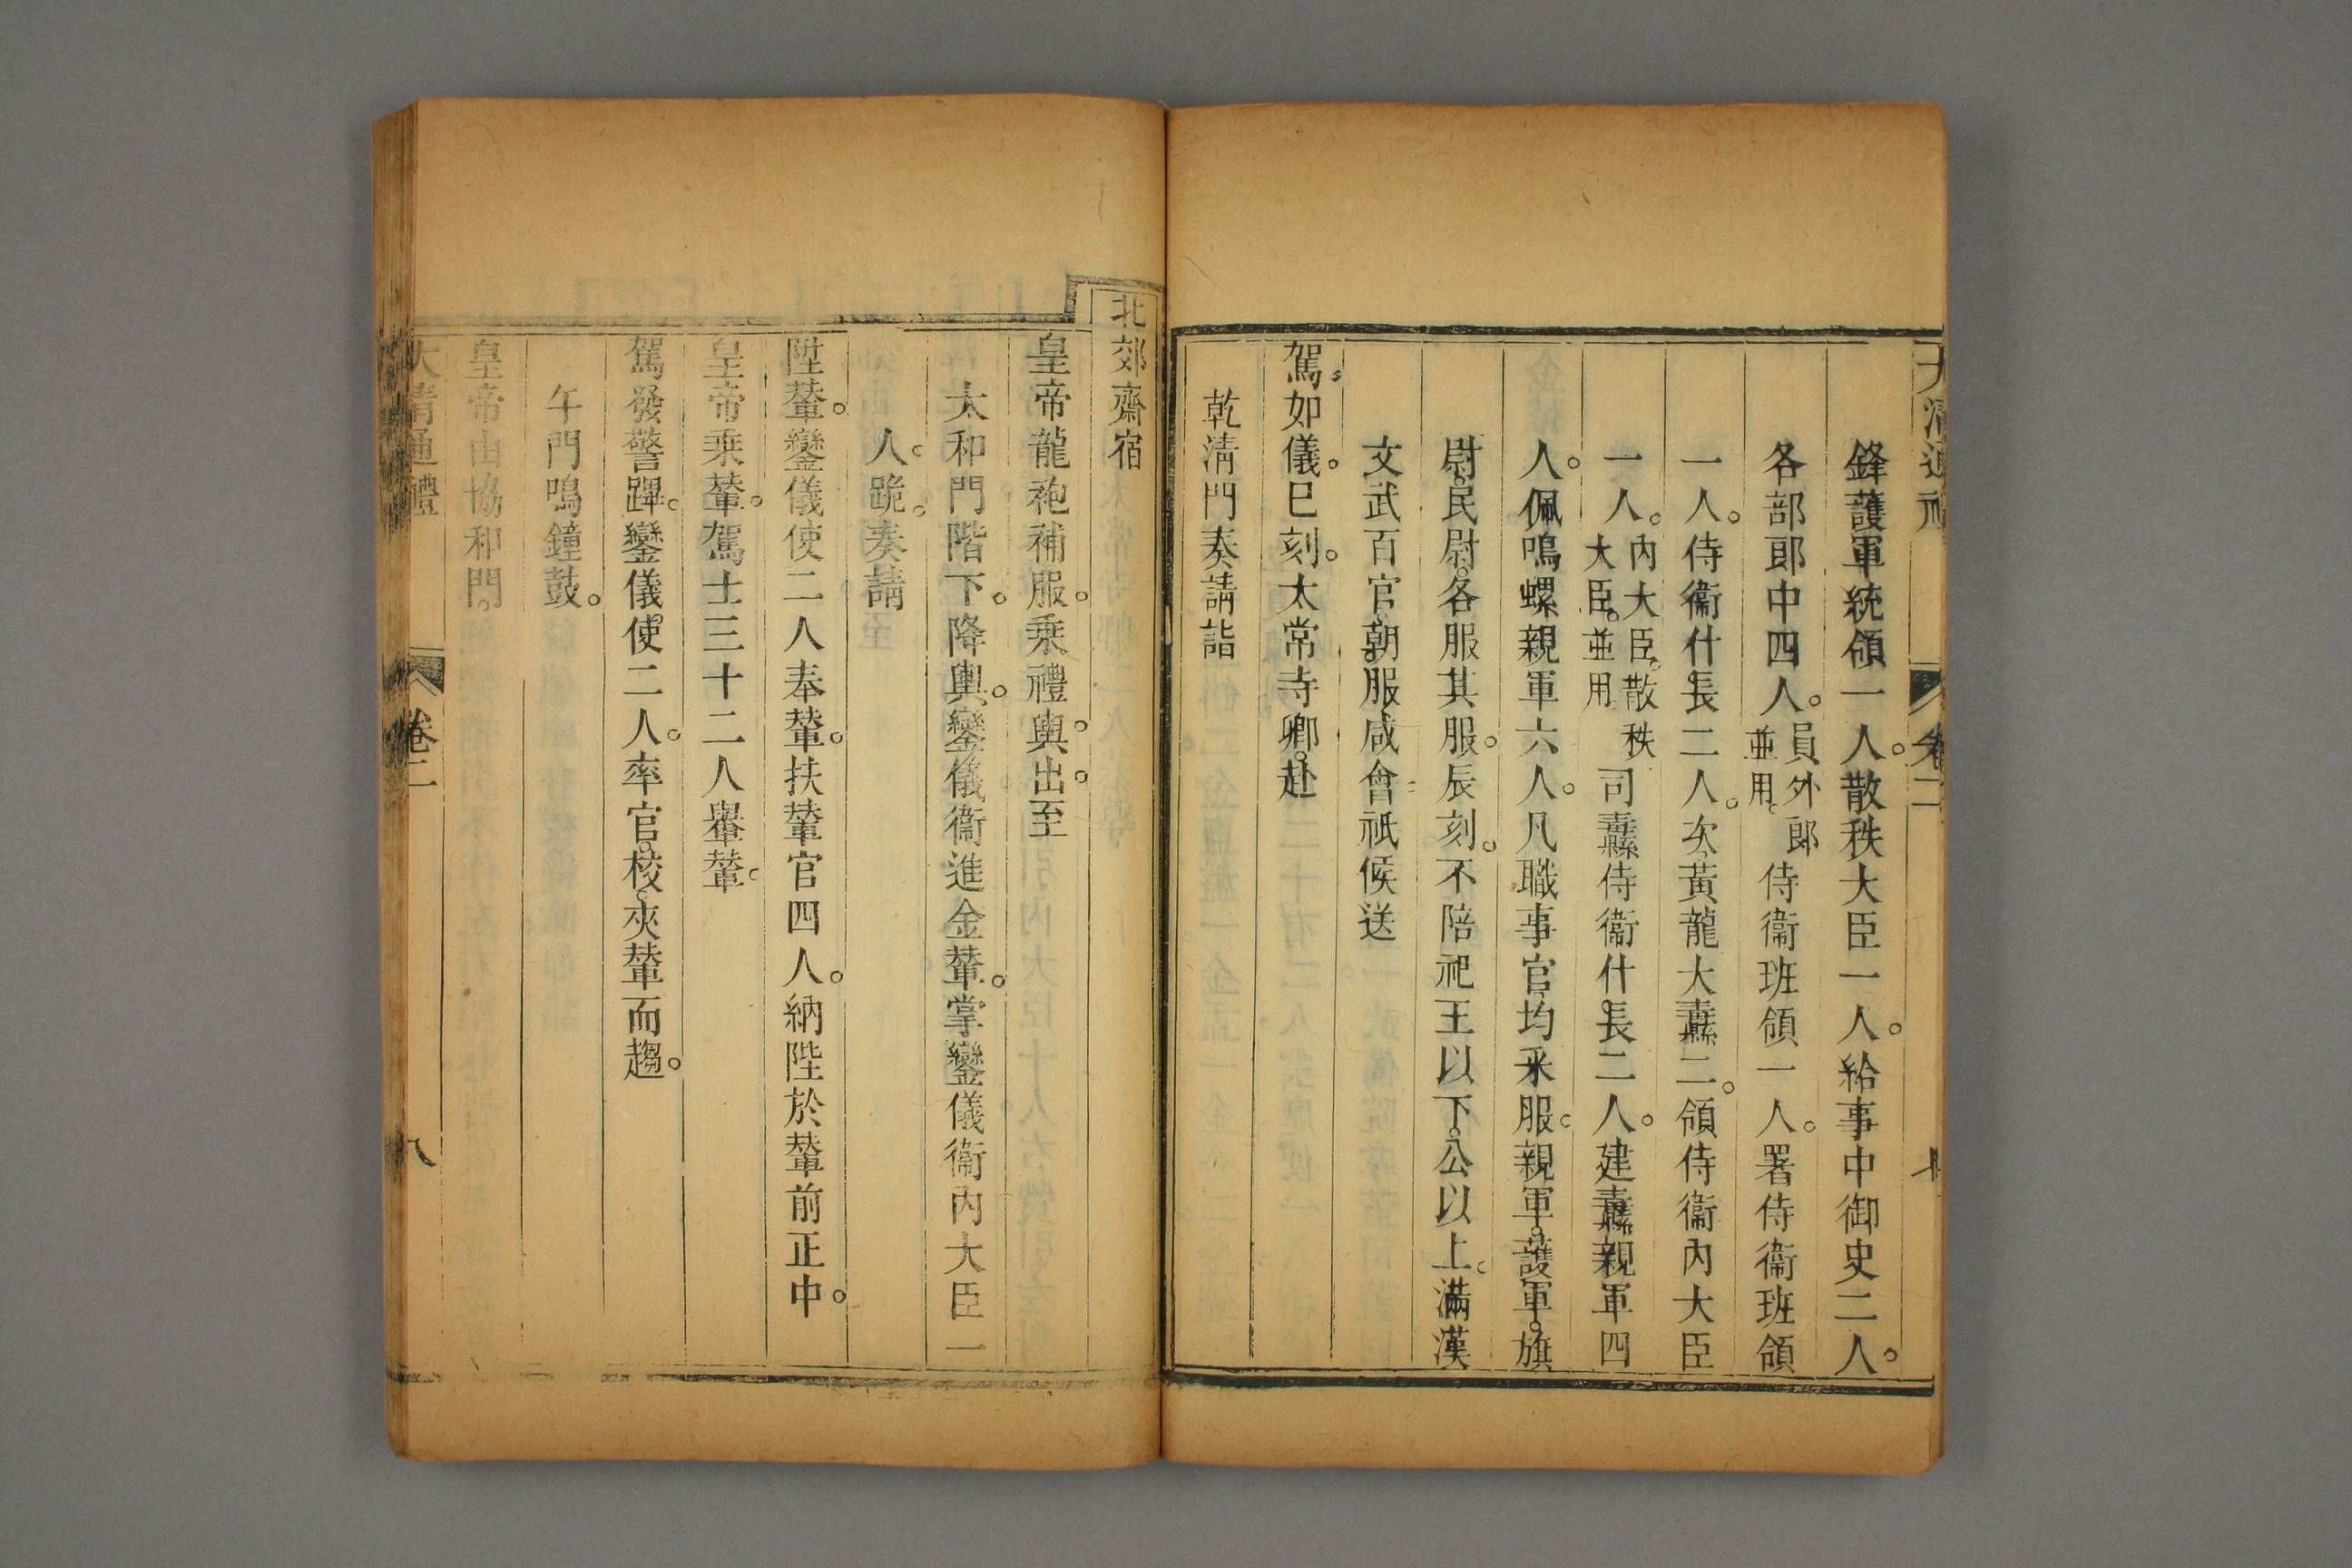 大清通禮 卷二 七
鋒護軍統領一人。散秩大臣一人。給事中御史二人。
各部郎中四人。員外郎並用。侍衞班領一人。署侍衞班領
一人。侍衞什長二人。次黃龍大纛二。領侍衞內大臣
一人。內大臣。散秩大臣。並用司纛侍衞什長二人。建纛親軍四
人。佩鳴螺親軍六人。凡職事官均采服。親軍。護軍。旗
尉。民尉。各服其服。辰刻。不陪祀王以下。公以上。滿漢
文武百官。朝服咸會祇候送
駕。如儀。巳刻。太常寺卿。赴
乾淸門奏請詣
北郊齋宿
皇帝龍袍補服。乘禮輿。出至
太和門階下。降輿。鑾儀衞進金輦。掌鑾儀衞內大臣一
人。跪。奏請
陞輦。鑾儀使二人奉輦。扶輦官四人。納陛於輦前正中。
皇帝乘輦。駕士三十二人舉輦。
駕發警蹕。鑾儀使二人。率官校。夾輦而趨。
午門鳴鐘鼓。
皇帝由協和門。
大清通禮 卷二 八